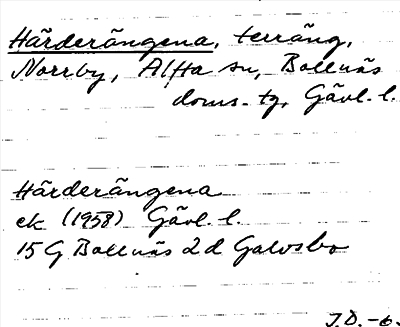 Härderängena, terräng,
Norrby, Alfta sn, Bollnäs
doms. tg, Gävl. l.
Härderängena
ek (1958) Gävl. l.
15 G Bollnäs 2 d Galvsbo
J.Ö. -6.